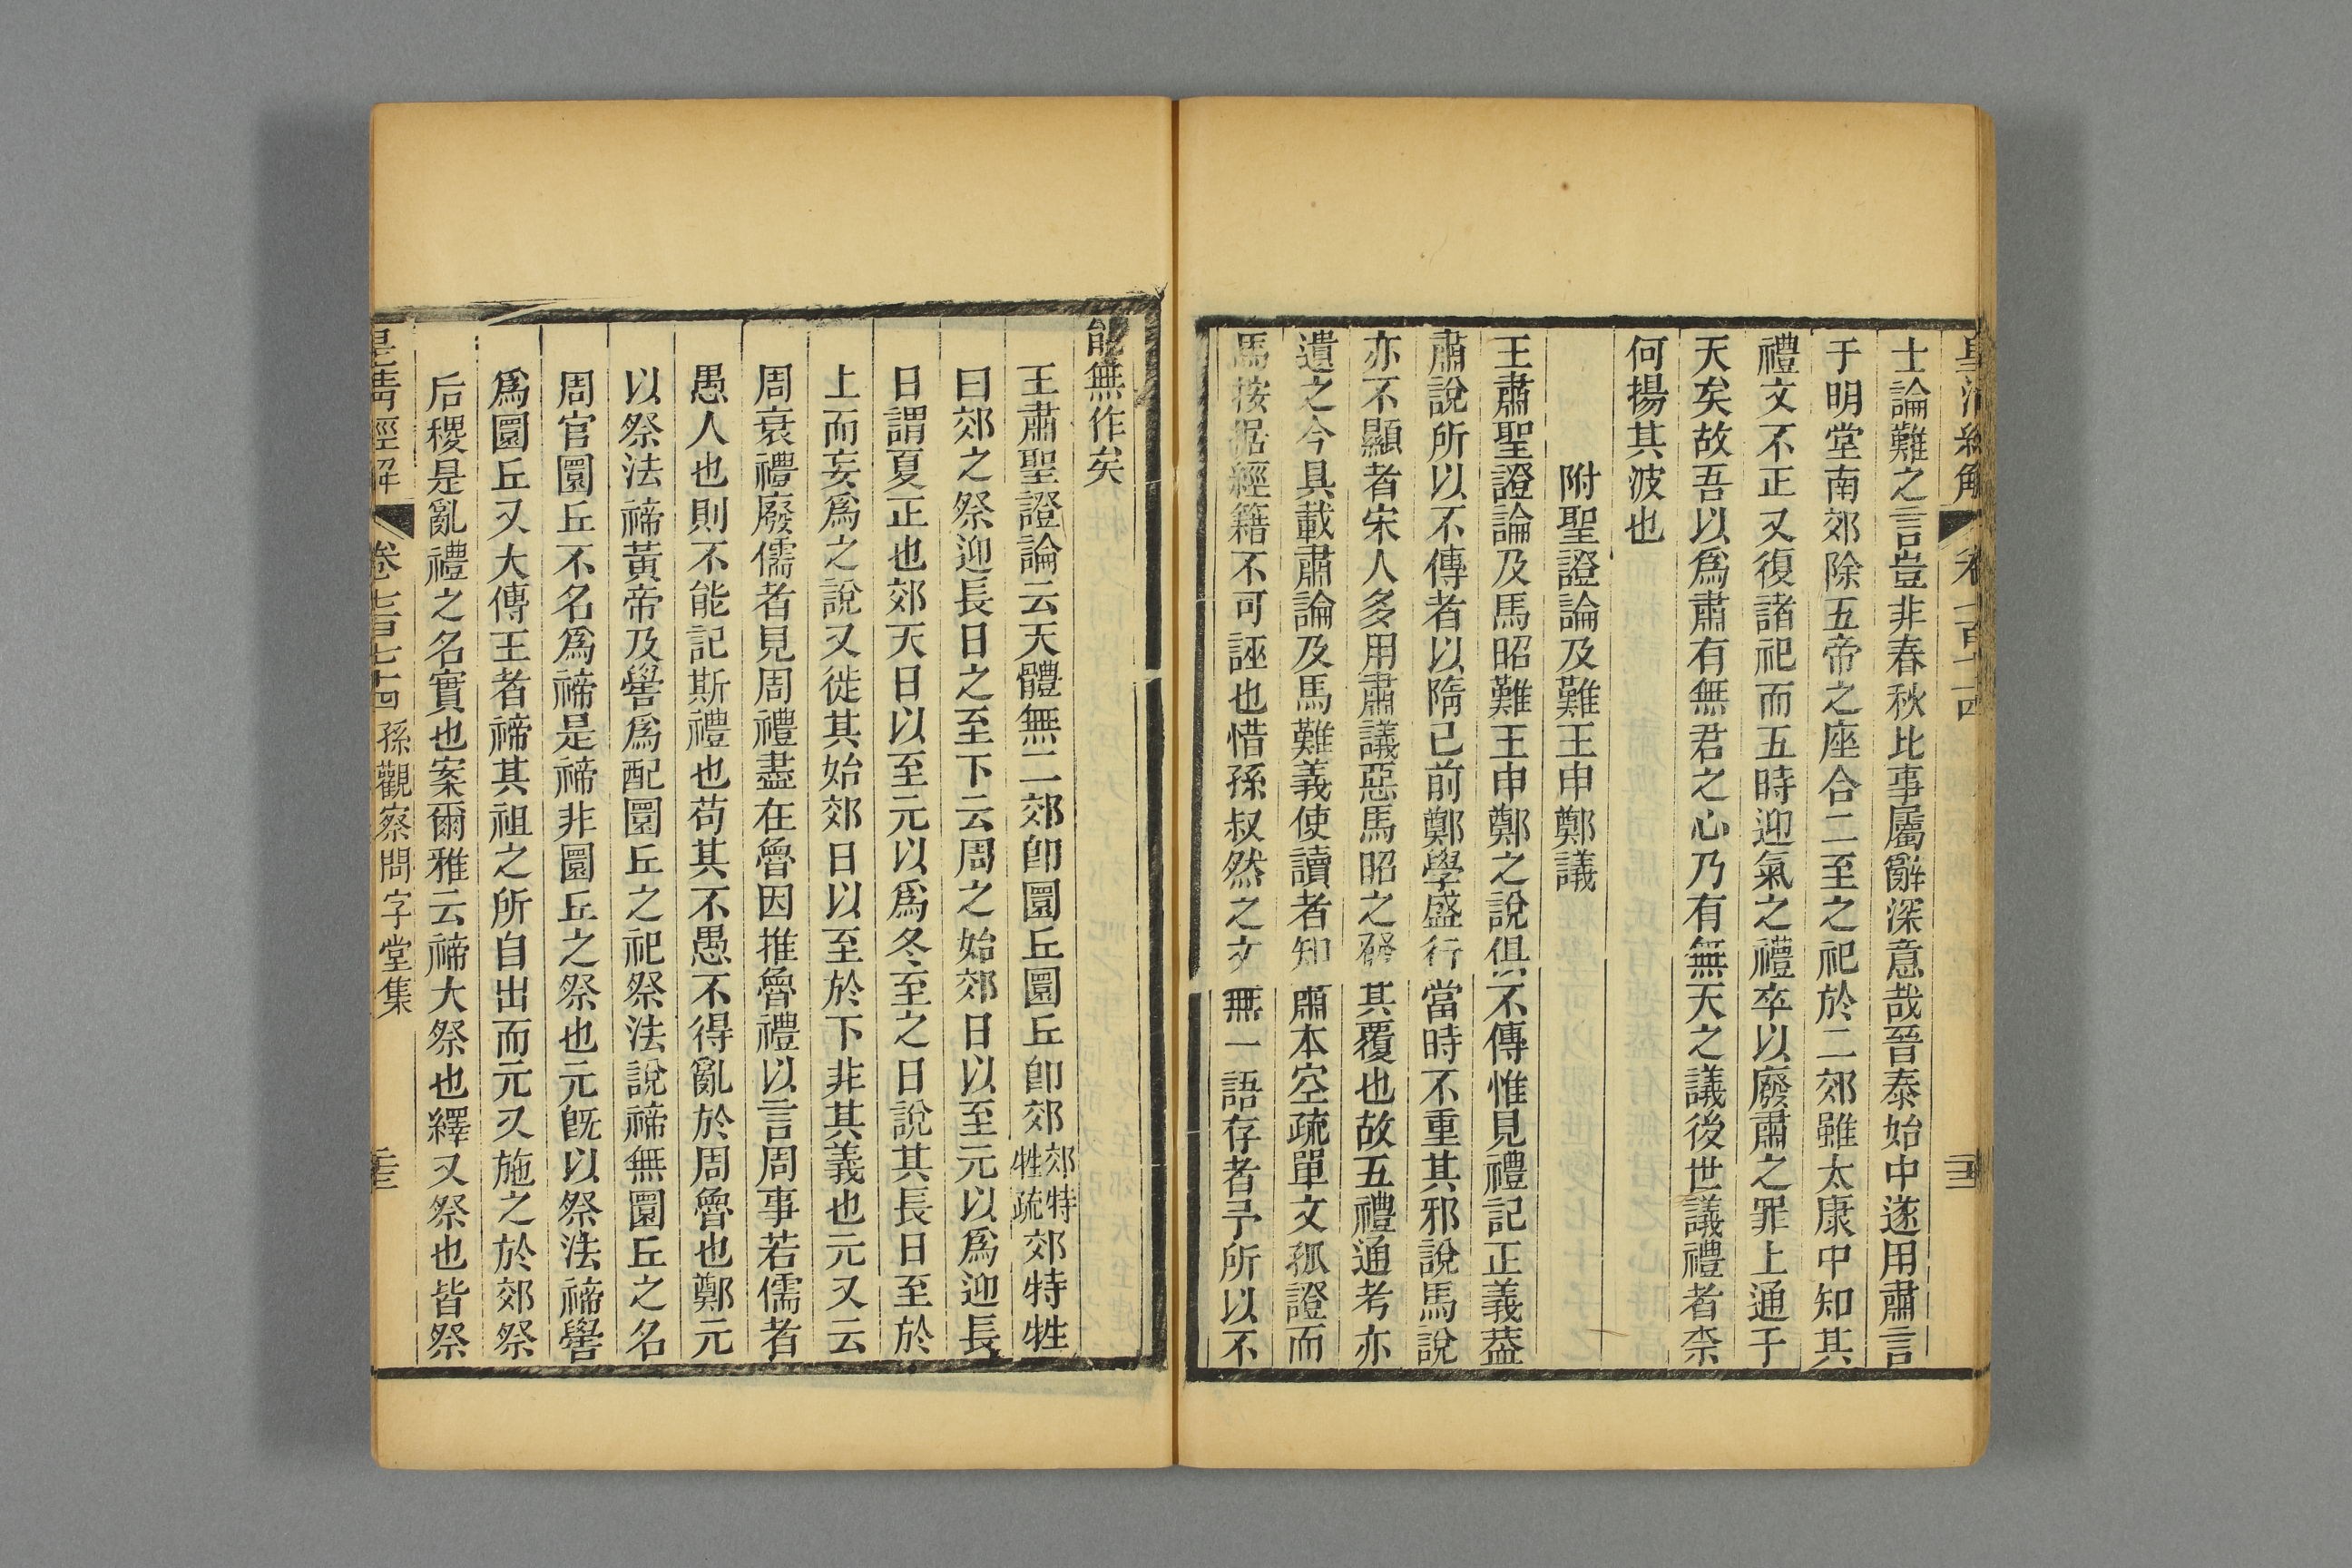 皇清經解 卷七百七十四
士論難之言豈非春秋比事屬辭深意哉晉泰始中遂用肅言
于明堂南郊除五帝之座合二至之祀於二郊雖太康中知其
禮文不正又復諸祀而五時迎氣之禮卒以廢肅之罪上通于
天矣故吾以爲肅有無君之心乃有無天之議後世議禮者柰
何揚其波也
附聖證論及難王申鄭議
王肅聖證論及馬昭難王申鄭之說俱不傳惟見禮記正義葢
肅說所以不傳者以隋已前鄭學盛行當時不重其邪說馬說
亦不顯者宋人多用肅議惡馬昭之發其覆也故五禮通考亦
遺之今具載肅論及馬難義使讀者知肅本空疏單文孤證而
馬按据經籍不可誣也惜孫叔然之文無一語存者予所以不
能無作矣
王肅聖證論云天體無二郊卽圜丘圜丘卽郊郊特牲疏郊特牲
曰郊之祭迎長日之至下云周之始郊日以至元以爲迎長
日謂夏正也郊天日以至元以爲冬至之日說其長日至於
上而妄爲之說又徙其始郊日以至於下非其義也元又云
周衰禮廢儒者見周禮盡在魯因推魯禮以言周事若儒者
愚人也則不能記斯禮也苟其不愚不得亂於周魯也鄭元
以祭法禘黃帝及嚳爲配圜丘之祀祭法說禘無圜丘之名
周官圜丘不名爲禘是禘非圜丘之祭也元旣以祭法禘嚳
爲圜丘又大傳王者禘其祖之所自出而元又施之於郊祭
后稷是亂禮之名實也案爾雅云禘大祭也繹又祭也皆祭
皇清經解 卷七百七十四 孫觀察問字堂集